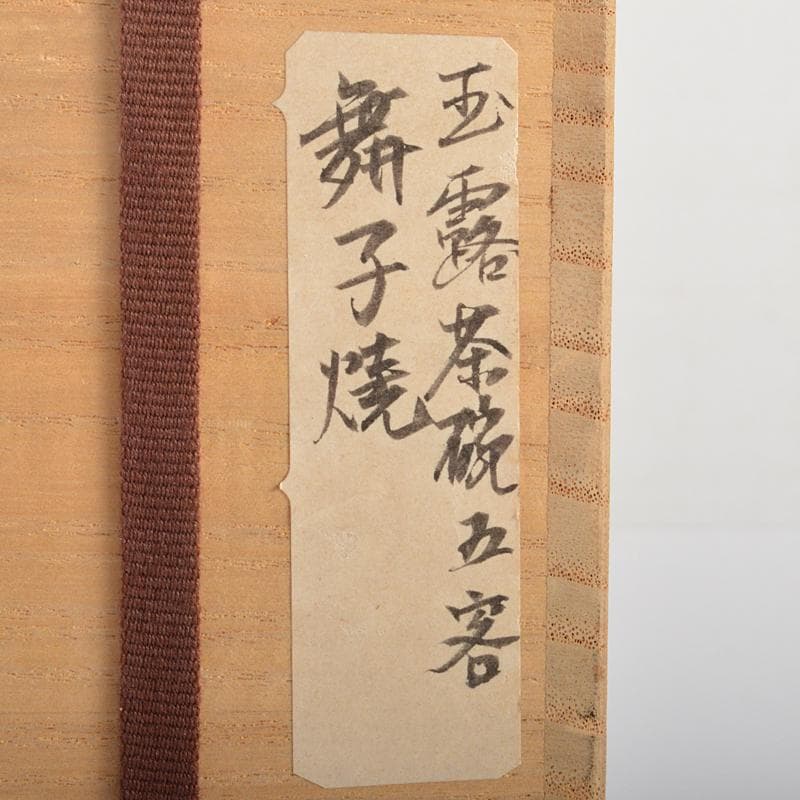 玉露茶碗五客
舞子燒